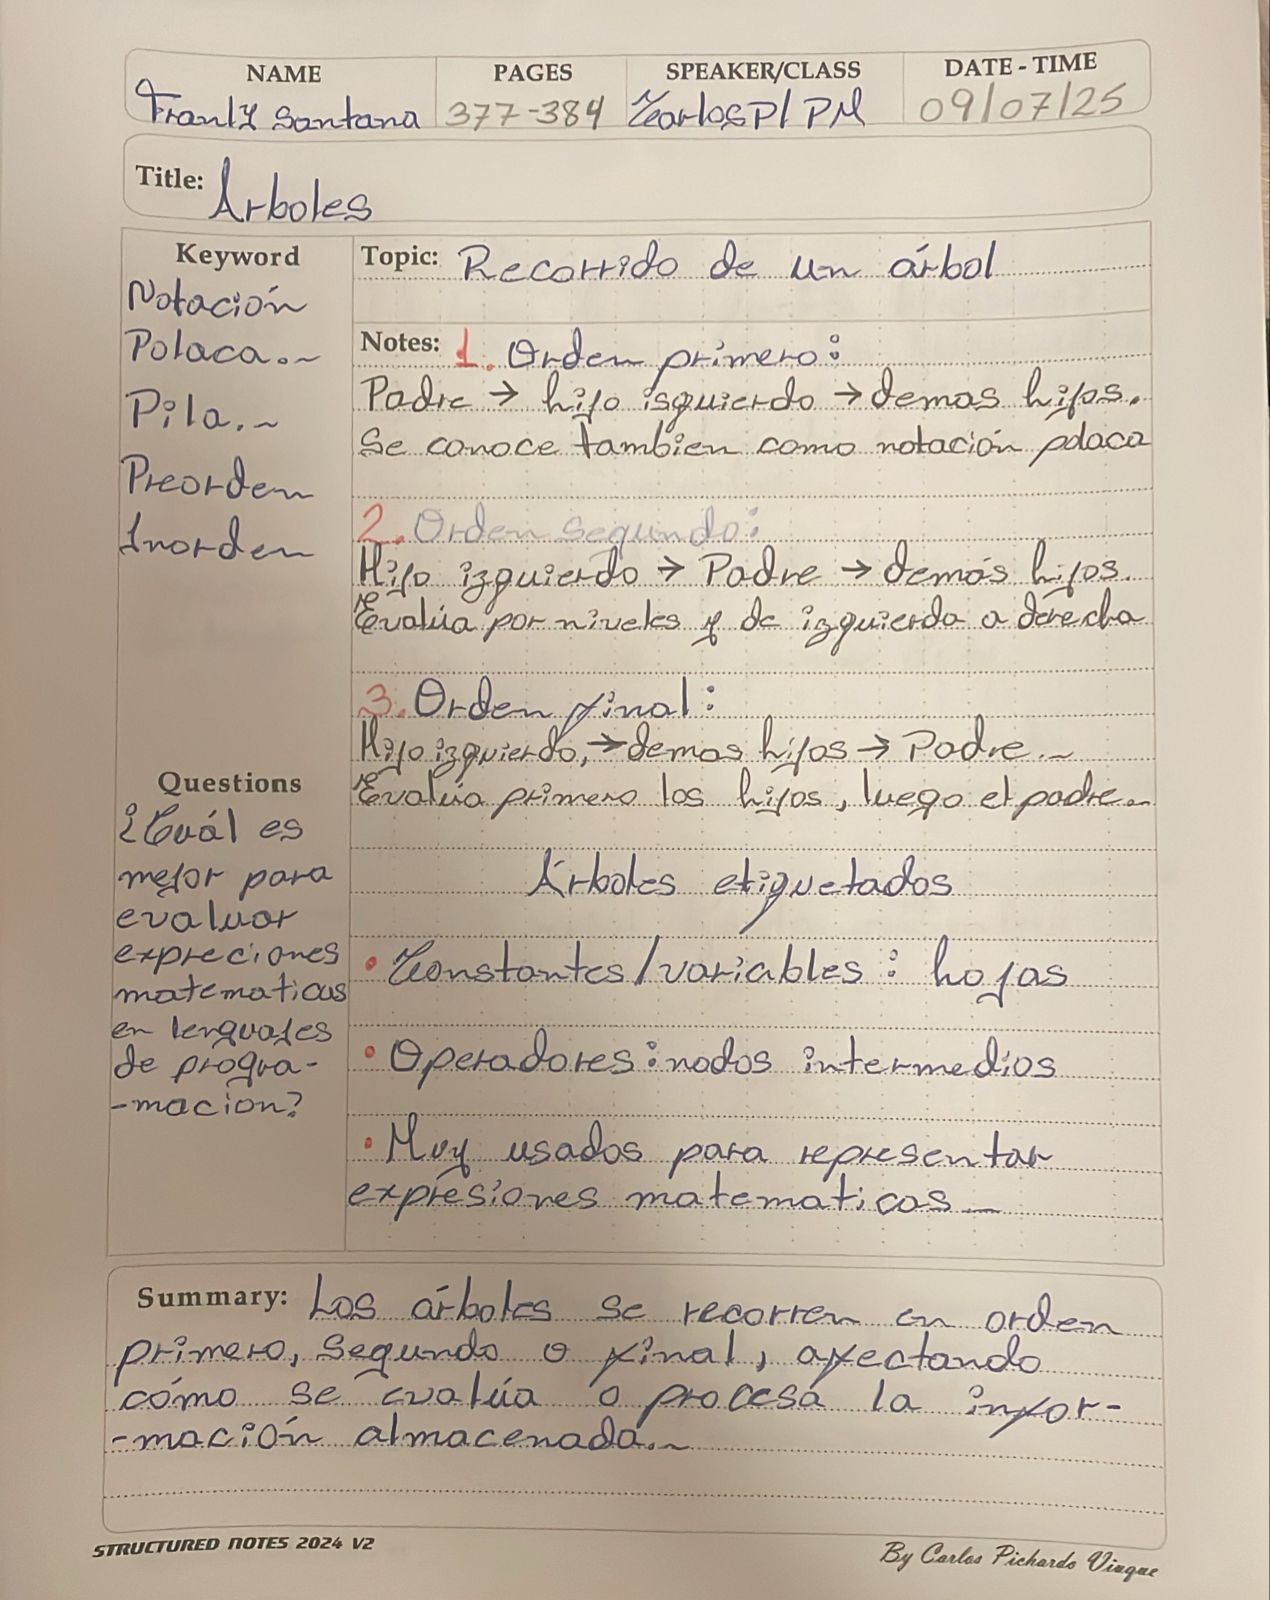 NAME PAGES SPEAKER/CLASS DATE - TIME
Franly Santana 377-384 CarlosP/ PM 09/07/25
Title: Árboles
Keyword
Notación
Polaca.~
Pila.~
Preorden
Inorden
Questions
¿Cuál es
mejor para
evaluar
expreciones
matematicas
en lenguajes
de progra-
-macion?
Topic: Recorrido de un árbol
Notes: 1. Orden primero:
Padre → hijo isquierdo → demas hijos.
Se conoce tambien como notación polaca
2. Orden segundo:
Hijo izquierdo → Padre → demás hijos.
Evalúa por niveles y de izquierda a derecha
3. Orden final:
Hijo izquierdo, → demas hijos → Padre.~
Evalúa primero los hijos, luego el padre.~
Árboles etiquetados
• Constantes/variables: hojas
• Operadores: nodos intermedios
• Muy usados para representar
expresiones matematicas._
Summary: Los árboles se recorren en orden
primero, segundo o final, afectando
cómo se evalúa o procesa la infor-
-mación almacenada.~
STRUCTURED NOTES 2024 V2
By Carlos Pichardo Viuque